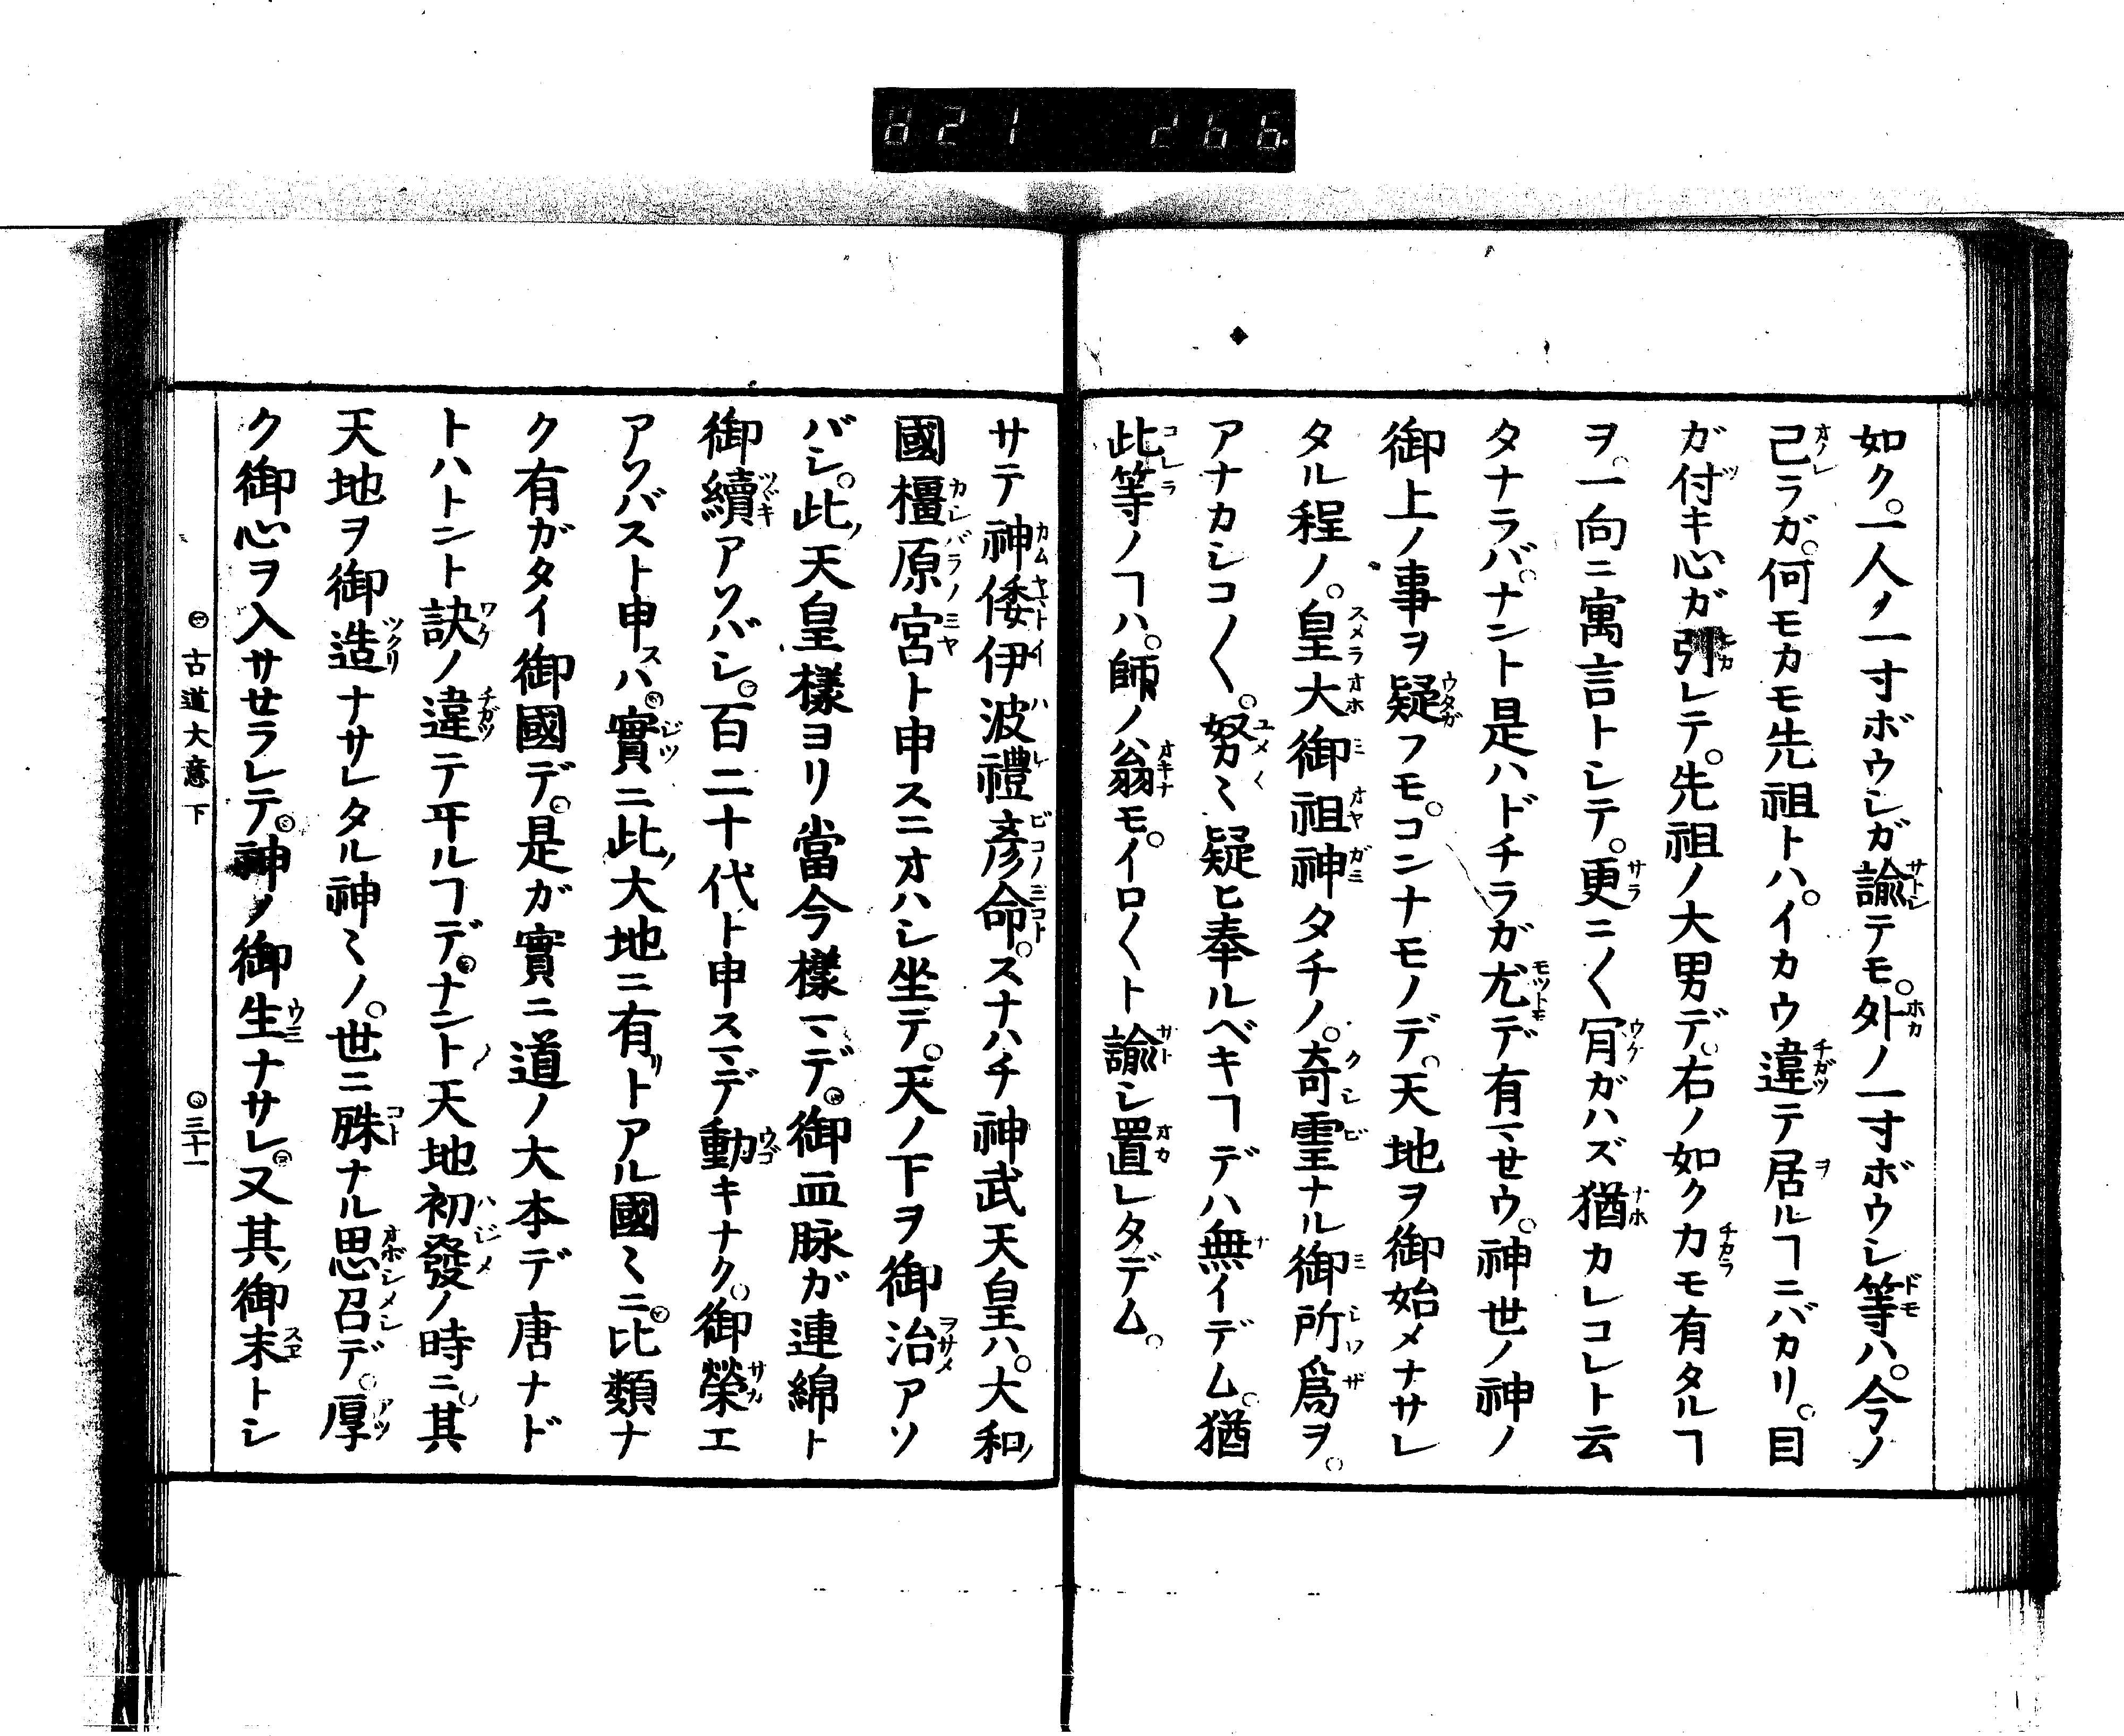 821 266
如ク。一人ノ一寸ボウシガ諭テモ。外ノ一寸ボウシ等ハ。今ノ
己ラガ。何モカモ先祖トハ。イカウ違テ居ルヿニバカリ。目
ガ付キ心ガ引レテ。先祖ノ大男デ。右ノ如クカモ有タルヿ
ヲ。一向ニ寓言トシテ。更ニ〱肯ガハズ猶カレコレト云
タナラバ。ナント是ハドチラガ尤デ有マせウ。神世ノ神ノ
御上ノ事ヲ疑フモ。コンナモノデ。天地ヲ御始メナサレ
タル程ノ。皇大御祖神タチノ。奇霊ナル御所爲ヲ。
アナカシコ〱。努〻疑ヒ奉ルベキヿデハ無イデム。猶
此等ノヿハ。師ノ翁モ。イロ〱ト諭シ置レタデム。
サテ神倭伊波禮彦命。スナハチ神武天皇ハ。大和ノ
國橿原宮ト申スニオハシ坐デ。天ノ下ヲ御治アソ
バシ。此ノ天皇樣ヨリ當今樣マデ。御血脉ガ連綿ト
御續アソバシ。百二十代ト申スマデ動キナク。御榮エ
アソバスト申スハ。實ニ此ノ大地ニ有リトアル國〻ニ。比類ナ
ク有ガタイ御國デ。是ガ實ニ道ノ大本デ唐ナド
トハトント訣ノ違テ平ルヿデ。ナント天地初發ノ時ニ。其ノ
天地ヲ御造ナサレタル神〻ノ。世ニ殊ナル思召デ。厚
ク御心ヲ入サせラレテ。神ノ御生ナサレ。又其ノ御末トシ
古道大意 下
三十一